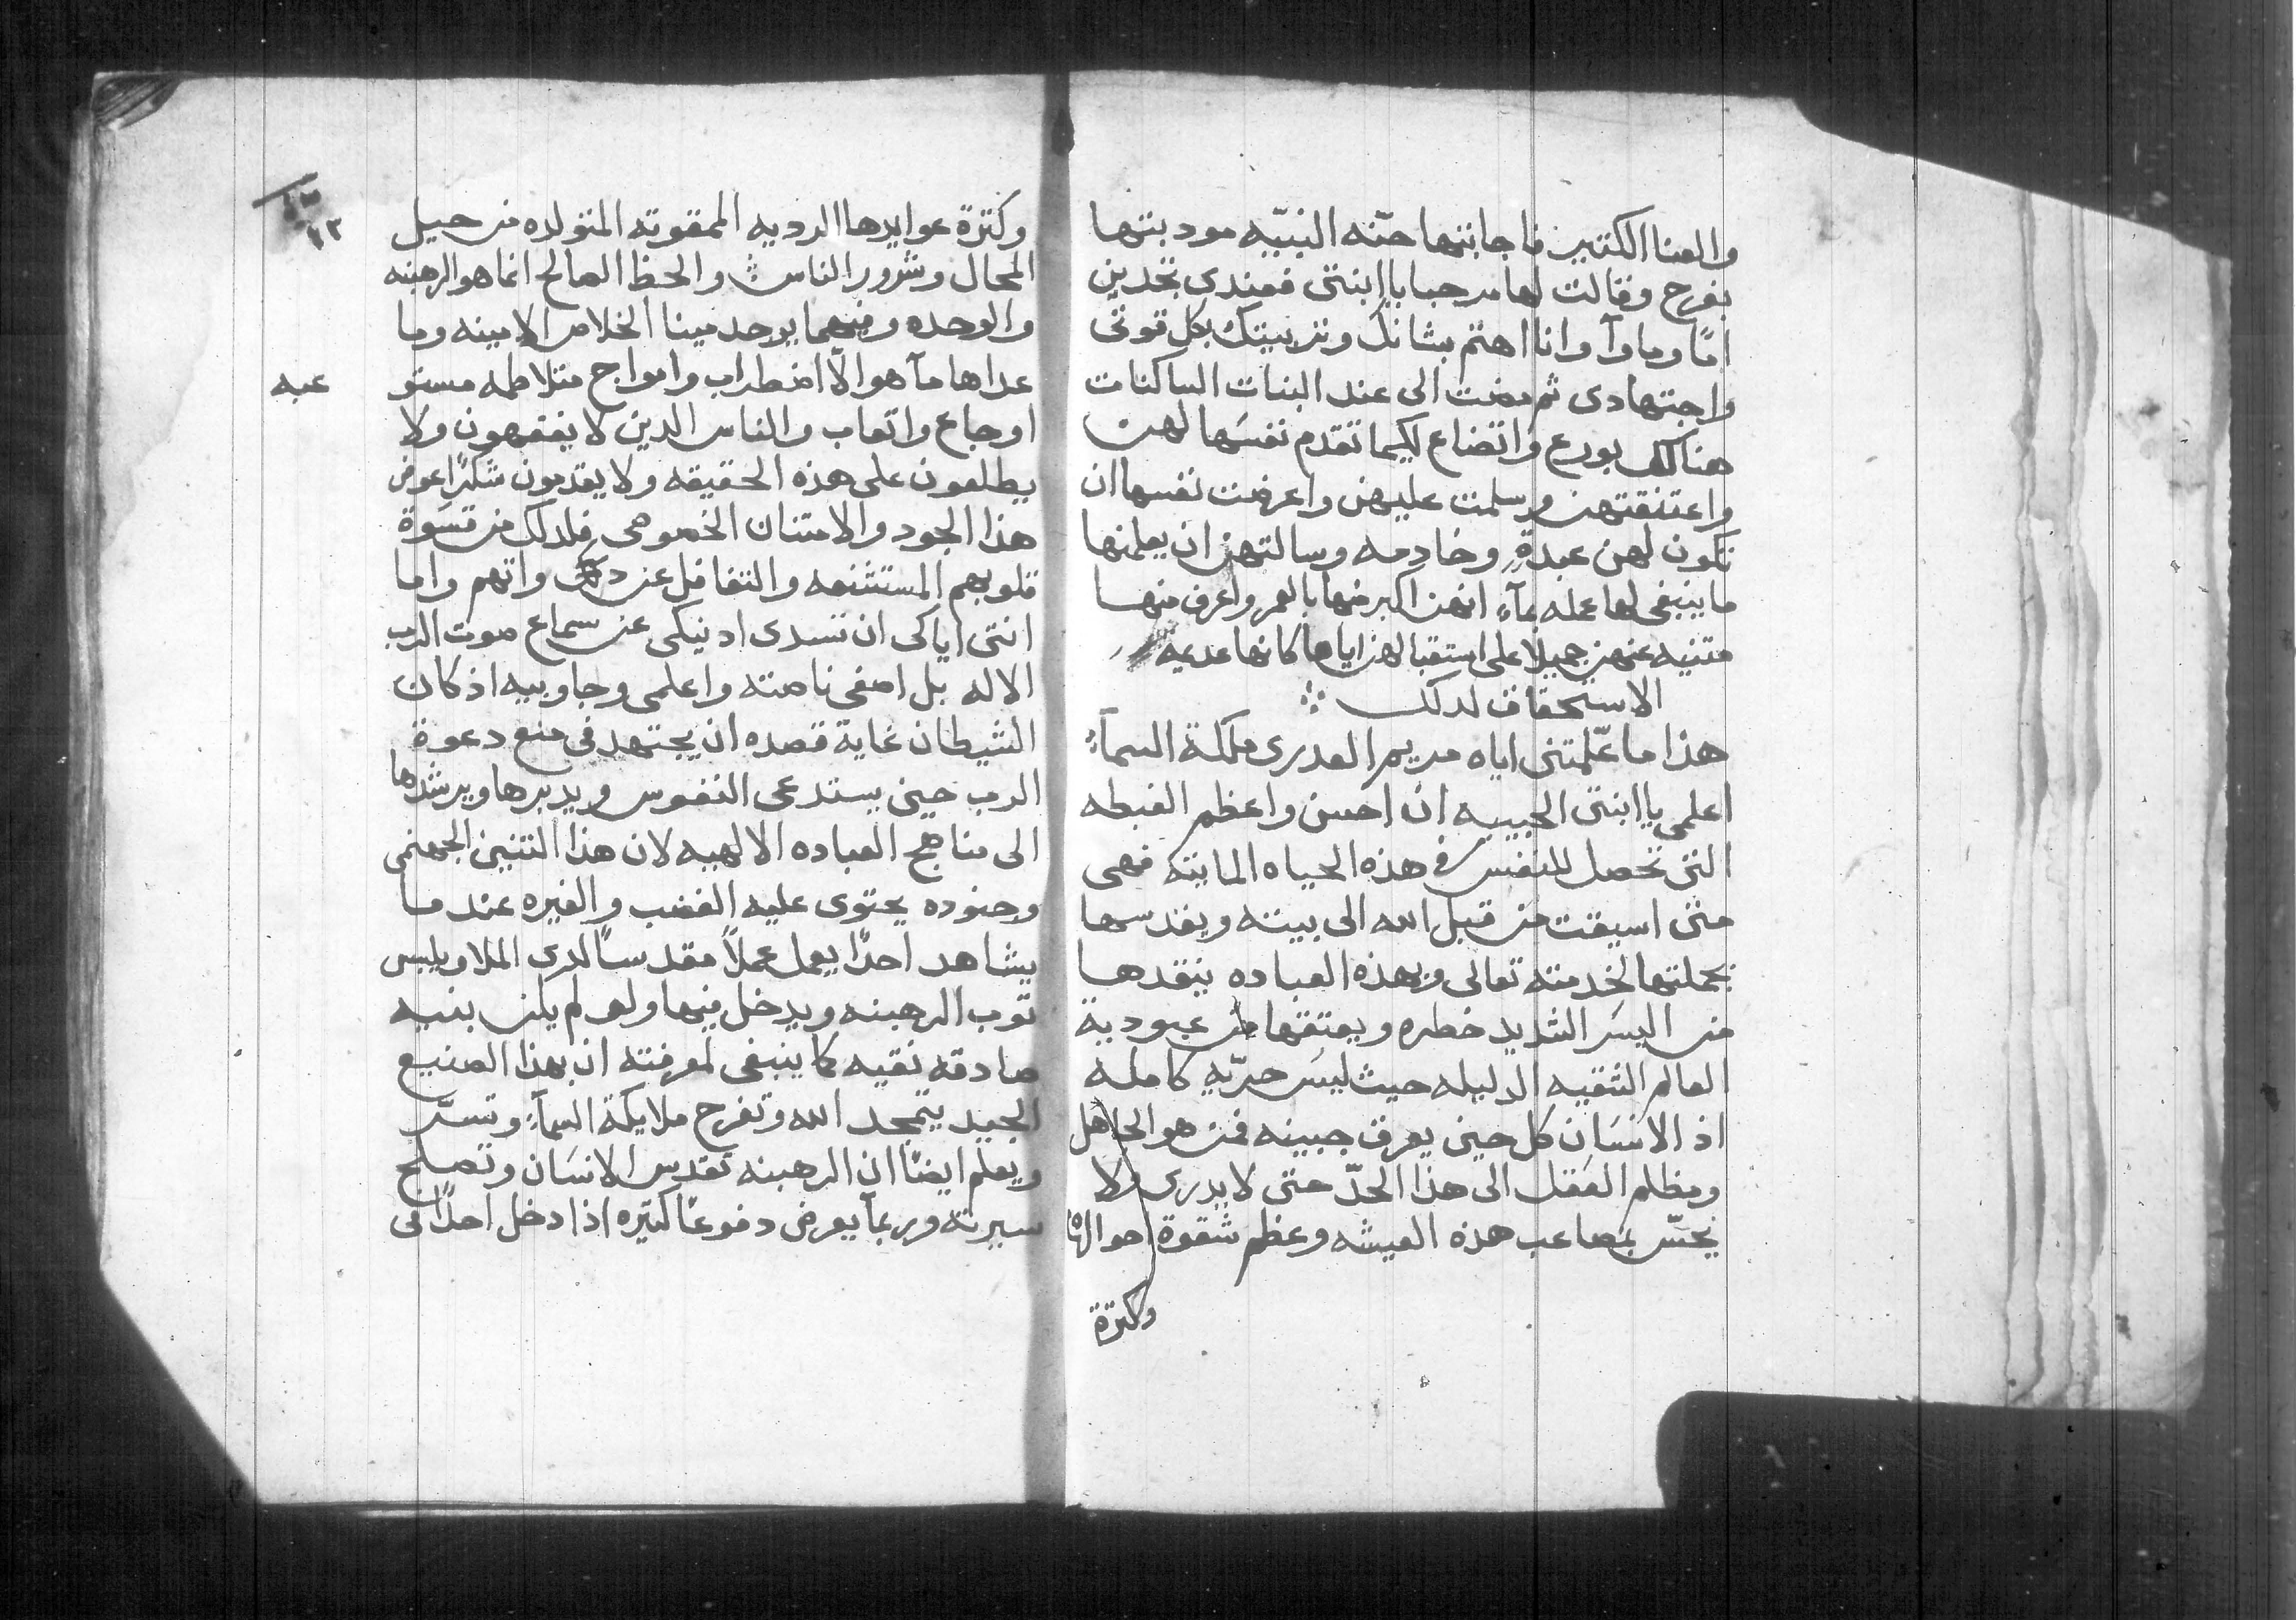 والعنا الكتير فاجابتها حنّه النبيّه مودبتها
بفرح وقالت لها مرحبا يا ابنتى فعندى تجدين
امًا وماوآ وانا اهتم بشانك وتربيتك بكل قوتى
واجتهادى ثم مضت الى عند البنات الساكنات
هناك بورع واتضاع لكيما تقدم نفسَها لهن
واعتنقتهن وسلمت عليهن واعرضت نفسها ان
تكون لهن عبدةٍ وخادمه وسالتهن ان يعلمنها
ما ينبغى لها عمله بمآء انهن اكبر منها بالعمر واعرف منها
متنيه عنهن جميلا على استقبالهن اياها كانها عديمه
الاستحقاق لدلك
هذا ما علّمتنى اياه مريم العدرى ملكة السمآءِ
اعلمى يا ابنتى الحبيبه ان احسن واعظم الغبطه
التى تحصل للنفس فى هذه الحياه المايته فهى
متى اسيقت من قبل الله الى بيته ويقدسها
بجملتها لخدمته تعالى وبهذه العباده ينقدها
من اليسَر الشديد خطره ويعتقها من عبودية
العالم الشقيه الدليله حيث ليسَ حرّيه كامله
اذ الانسَان كل حين يعرق جبينه فمن هو الجاهل
ومظلم العقل الى هذا الحدّ حتى لا يدرى ولا
يحسّ بمصاعب هذه العيشه وعظم شقوة احوالها
وكترة
وكترة عوايدها الرديه الممقوته المتولده من حيل
المحال وشرور الناس والحظ الصالح انما هو الرهبنه
والوحده وفيهما يوجد مينا الخلاص الامينه وما
عداها مآ هو الّا اضطراب وامواج متلاطمه مستو
عبه
اوجاع واتعاب والناس الدين لا يفقهون ولا
يطلعون على هذه الحقيقه ولا يقدمون شكرًا عوض
هذا الجود والامتنان الخصوصى فلدلك من قسَوة
قلوبهم المستشنعه والتغافل عن دواتهم واما
انتى اياكى ان تسدى ادنيكى عن سماع صوت الرب
الاله بل اصغى ناصته واعلمى وجاوبيه اذ كان
الشيطان غاية قصده ان يجتهد فى منع دعوة
الرب حين يستدعى النفوس ويدبرها ويرشدها
الى مناهج العباده الالهيه لان هذا التنين الجهنمى
وجنوده يحتوى عليه الغضب والغيره عند ما
يشاهد احدًا يعمل عملاً مقدسًا لدى الملا ويلبس
توب الرهبنه ويدخل فيها ولو لم يكن بنيه
صادقه نقيه كما ينبغى لمعرفته ان بهذا الصنيع
الجيد يتمجد الله وتفرح ملايكة السمآءِ وتسرّ
ويعلم ايضًا ان الرهبنه تقدس الانسَان وتصلح
سيرته وربمآ يعرض دفوعًا كتيره اذا دخل احدًا فى